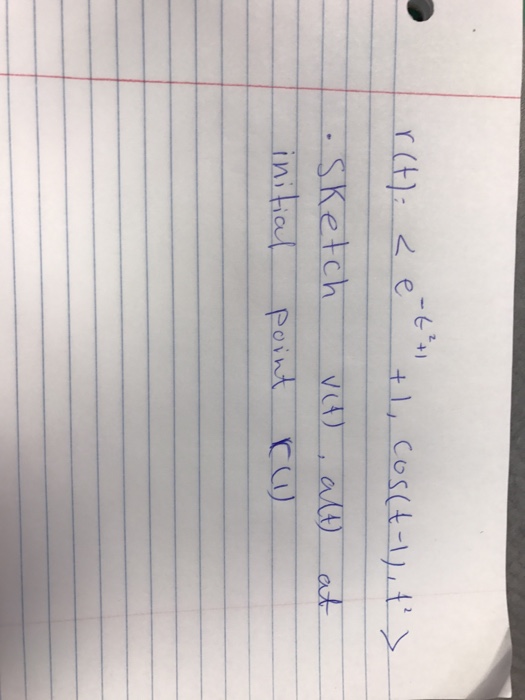 r(t): < e^-t²+1 +1, cos(t-1), t² >
• Sketch v(t), a(t) at
initial point r(1)